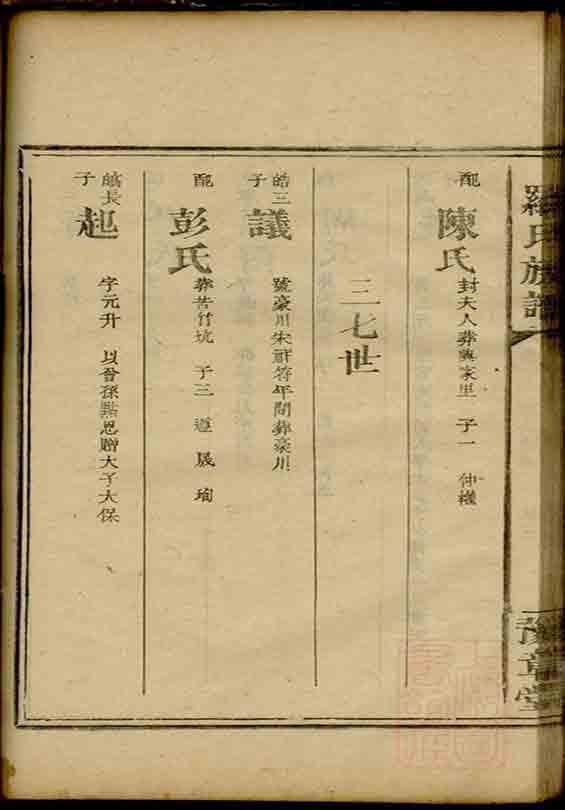 羅氏族譜
豫章堂
配 陳氏 封夫人葬興家里 子一 仲權
三七世
皓三子 議 號豪川宋祥符年間葬豪川
配 彭氏 葬苦竹坑 子三 遵 晟 珣
長子 起 字元升 以曾孫點恩贈大子大保